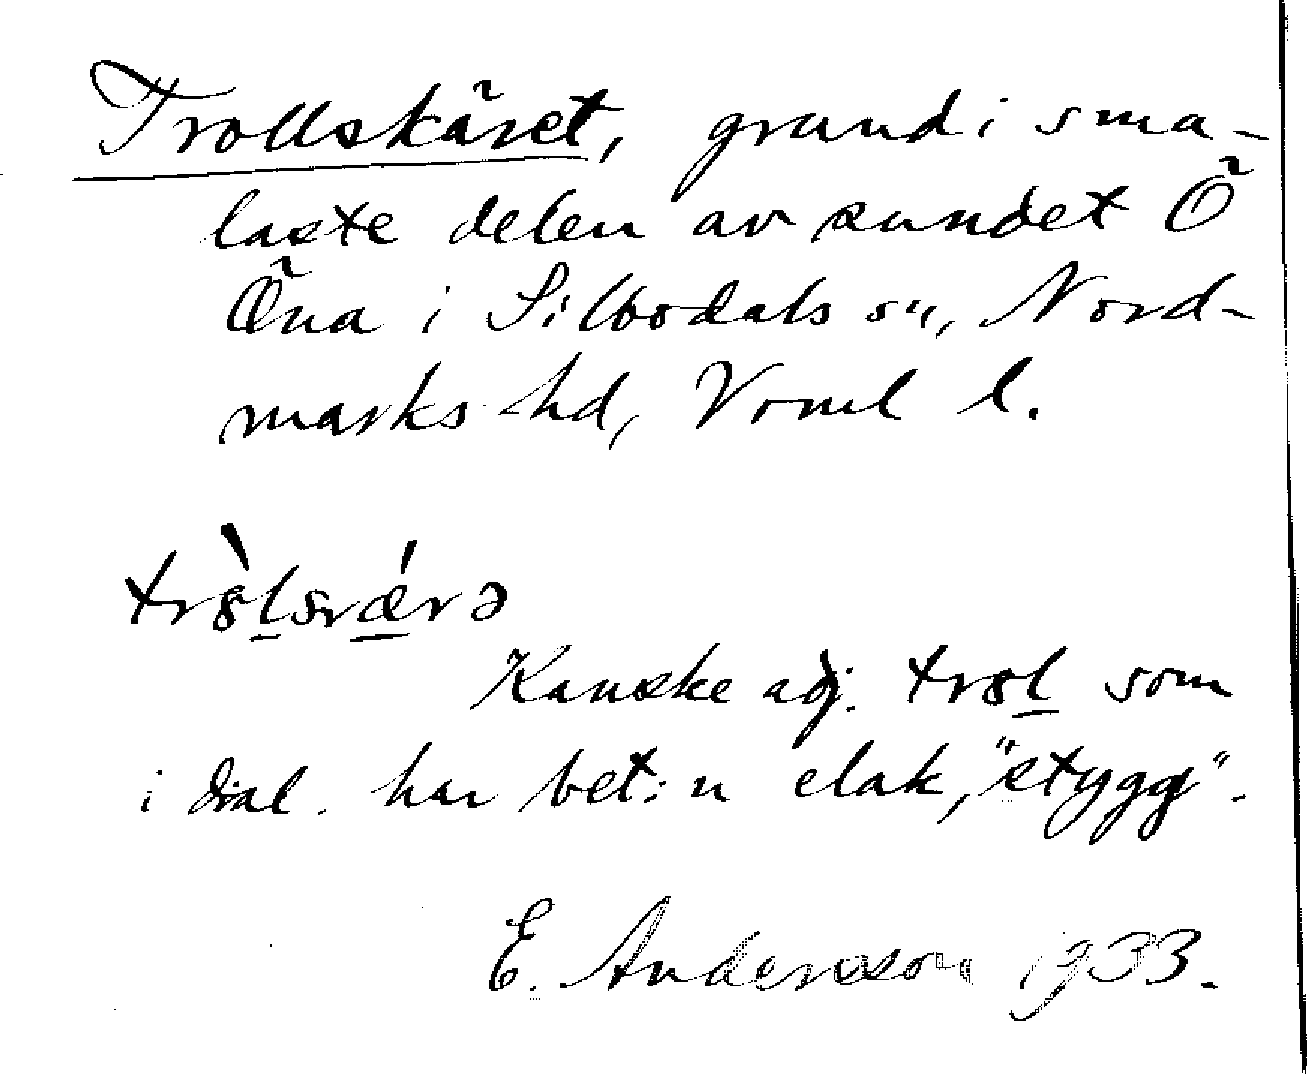 Trollskäret, grund i sma-
laste delen av sundet Ö
Öna i Silbodals sn, Nord-
marks hd, Vrml l.
Kanske adj. som
i dial. har bet:n elak, "stygg".
E. Andersson 1933.